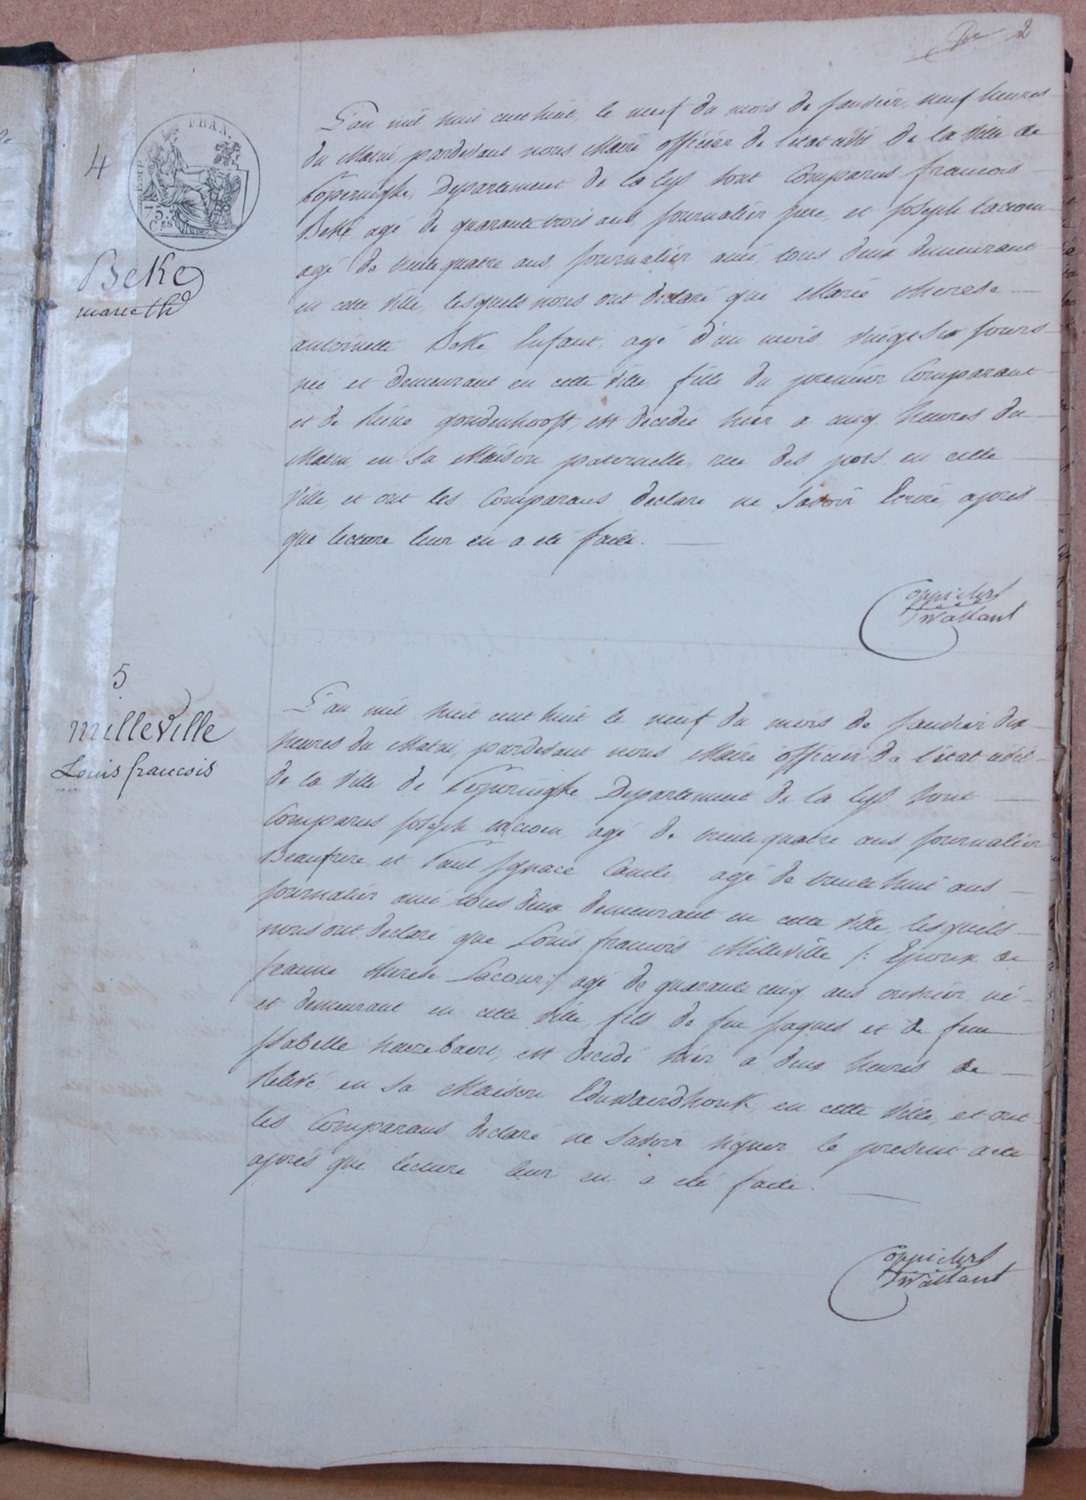 2
4
Beke
marie th
L'an mil huit cent huit, le neuf du mois de Janvier, neuf heures
du Matin, pardevant nous Maire officier de l'état civil de la Ville de
Poperinghe, Departement de la lys sont Comparus francois
Beke agé de quarante trois ans, journalier pere, et joseph
agé de trente quatre ans, journalier ami tous deux demeurant
en cette Ville, lesquels nous ont declaré que Marie therese
antoinette Beke Enfant, agé d'un mois vingt six jours
née et demeurant en cette Ville fille du premier Comparant
et de est decedée hier a cinq heures du
Matin en sa Maison paternelle, rue des pots en cette
Ville, et ont les Comparans declaré ne Savoir Ecrire, apres
que lecture leur en a eté faite.
5
Milleville
Louis francois
L'an mil huit cent huit le neuf du mois de Janvier dix
heures du Matin, pardevant nous Maire officier de l'état civil
de la Ville de Poperinghe Departement de la lys sont
Comparus joseph agé de trente quatre ans journalier
Beaufrere et Ignace agé de trente huit ans
journalier ami tous deux demeurant en cette Ville, lesquels
nous ont declaré que Louis francois Milleville /: Epoux de
jeanne therese Lacour :/ agé de quarante cinq ans ouvrier né
et demeurant en cette Ville fils de feu jaques et de feue
isabelle est decedé hier a deux heures de
Relevé, en sa Maison en cette Ville, et ont
les Comparans declaré ne Savoir signer le present acte
après que lecture leur en a eté faite.